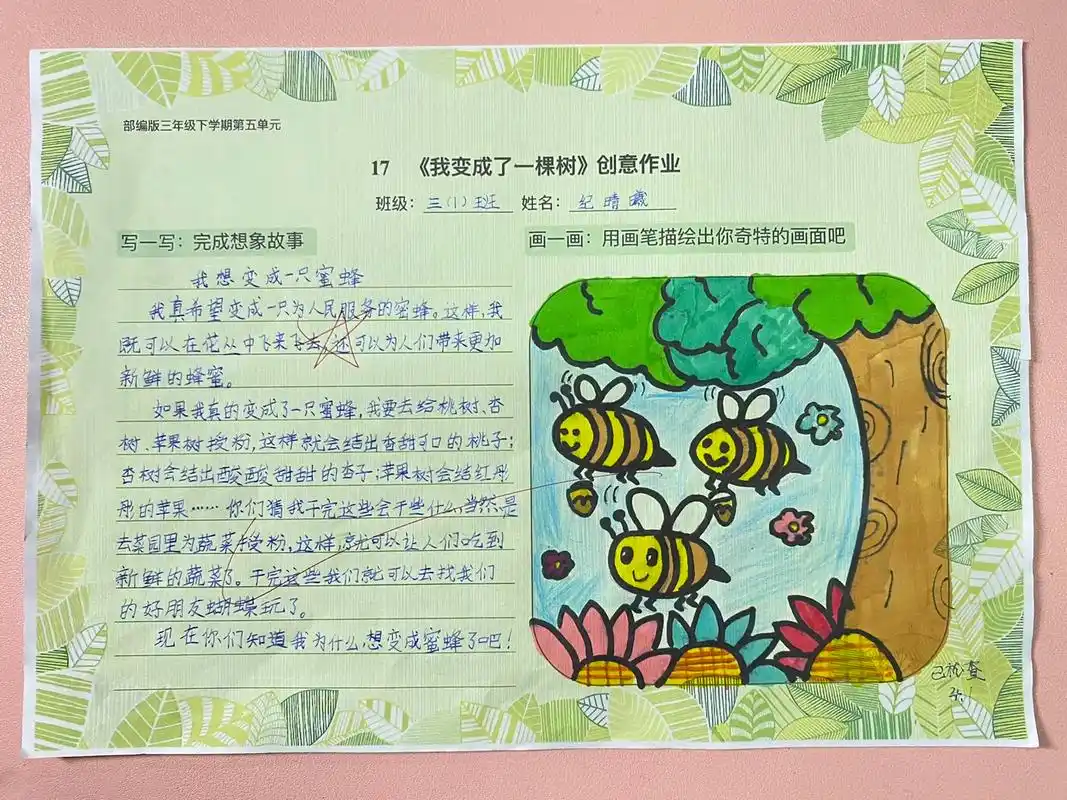 部编版三年级下学期第五单元
17 《我变成了一棵树》创意作业
班级：三（1）班 姓名：纪晴曦
写一写：完成想象故事
我想变成一只蜜蜂
我真希望变成一只为人民服务的密蜂。这样，我
既可以在花丛中飞来飞去，还可以为人们带来更加
新鲜的蜂蜜。
如果我真的变成了一只蜜蜂，我要去给桃树、杏
树、苹果树授粉，这样就会结出香甜可口的桃子；
杏树会结出酸酸甜甜的杏子；苹果树会结红彤
彤的苹果……你们猜我干完这些会干些什么，当然是
去菜园里为蔬菜授粉，这样，就可以让人们吃到
新鲜的蔬菜了。干完这些我们就可以去找我们
的好朋友蝴蝶玩了。
现在你们知道我为什么想变成蜜蜂了吧！
画一画：用画笔描绘出你奇特的画面吧
已检查
4.1